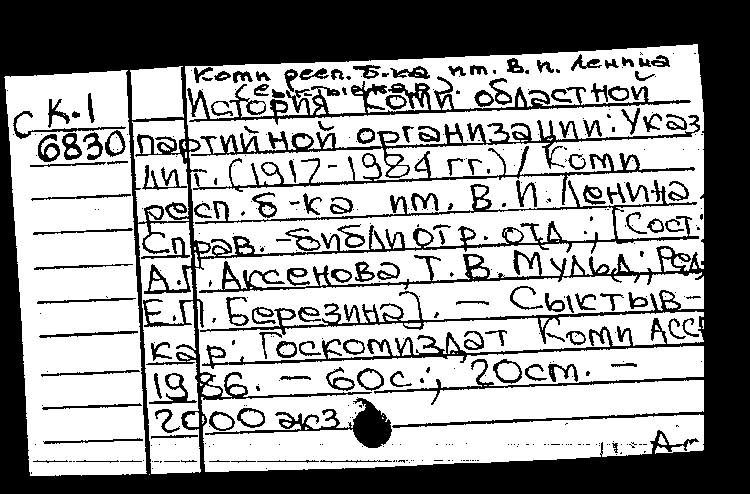 Коми респ. б-ка им. В. И. Ленина
(Сыктывкар).
С К.1
История Коми областной
6830
партийной организации: Указ.
лит. (1917-1984 гг.) / Коми
респ. б-ка им. В. И. Ленина.
Справ.-библиогр. отд.; [Сост.:
А.Г. Аксенова, Т. В. Мульд; Ред.
Е.П. Березина]. — Сыктыв-
кар: Госкомиздат Коми АССР
1986. — 60с.; 20см. —
2000 экз